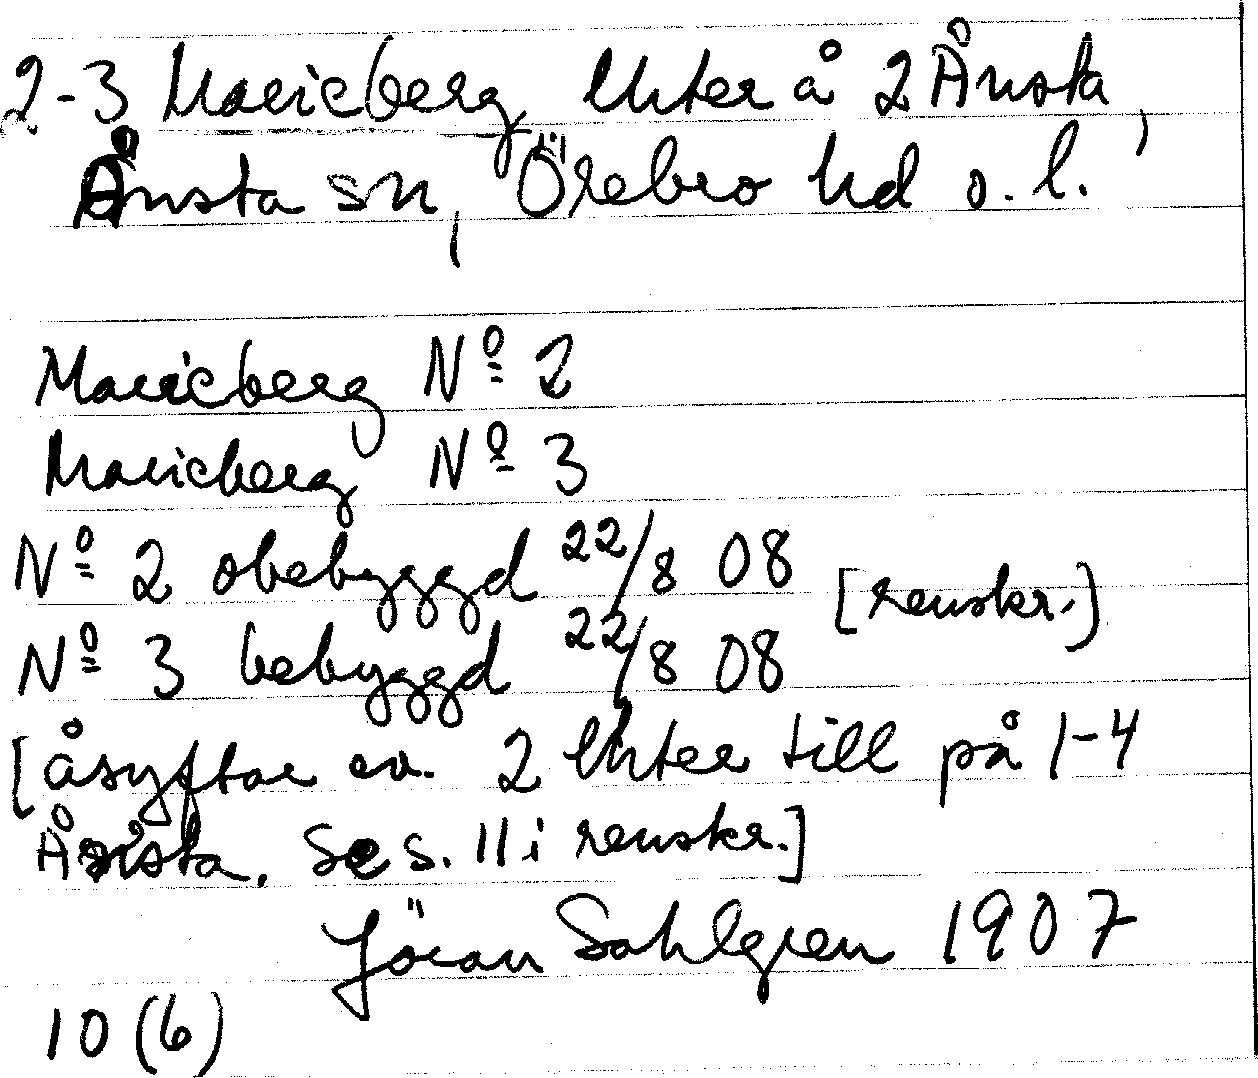 2-3 Marieberg lhter å 2 Ånsta,
Ånsta sn, Örebro hd o. l.
Marieberg Nº 2
Marieberg Nº 3
Nº 2 obebyggd 22/8 08
[renskr.]
Nº 3 bebyggd 22/8 08
[åsyftar ev. 2 lhter till på 1-4
Ånsta. Se s. 11 i renskr.]
Jöran Sahlgren 1907
10 (6)